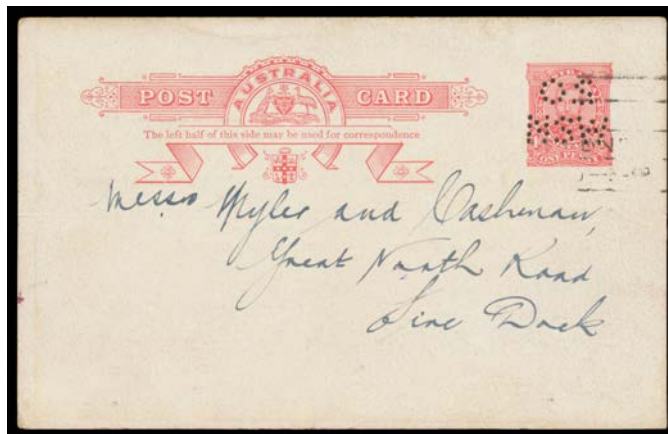 AUSTRALIA
POST CARD
The left half of this side may be used for correspondence
Messrs Myler and
Great North Road
Five Dock